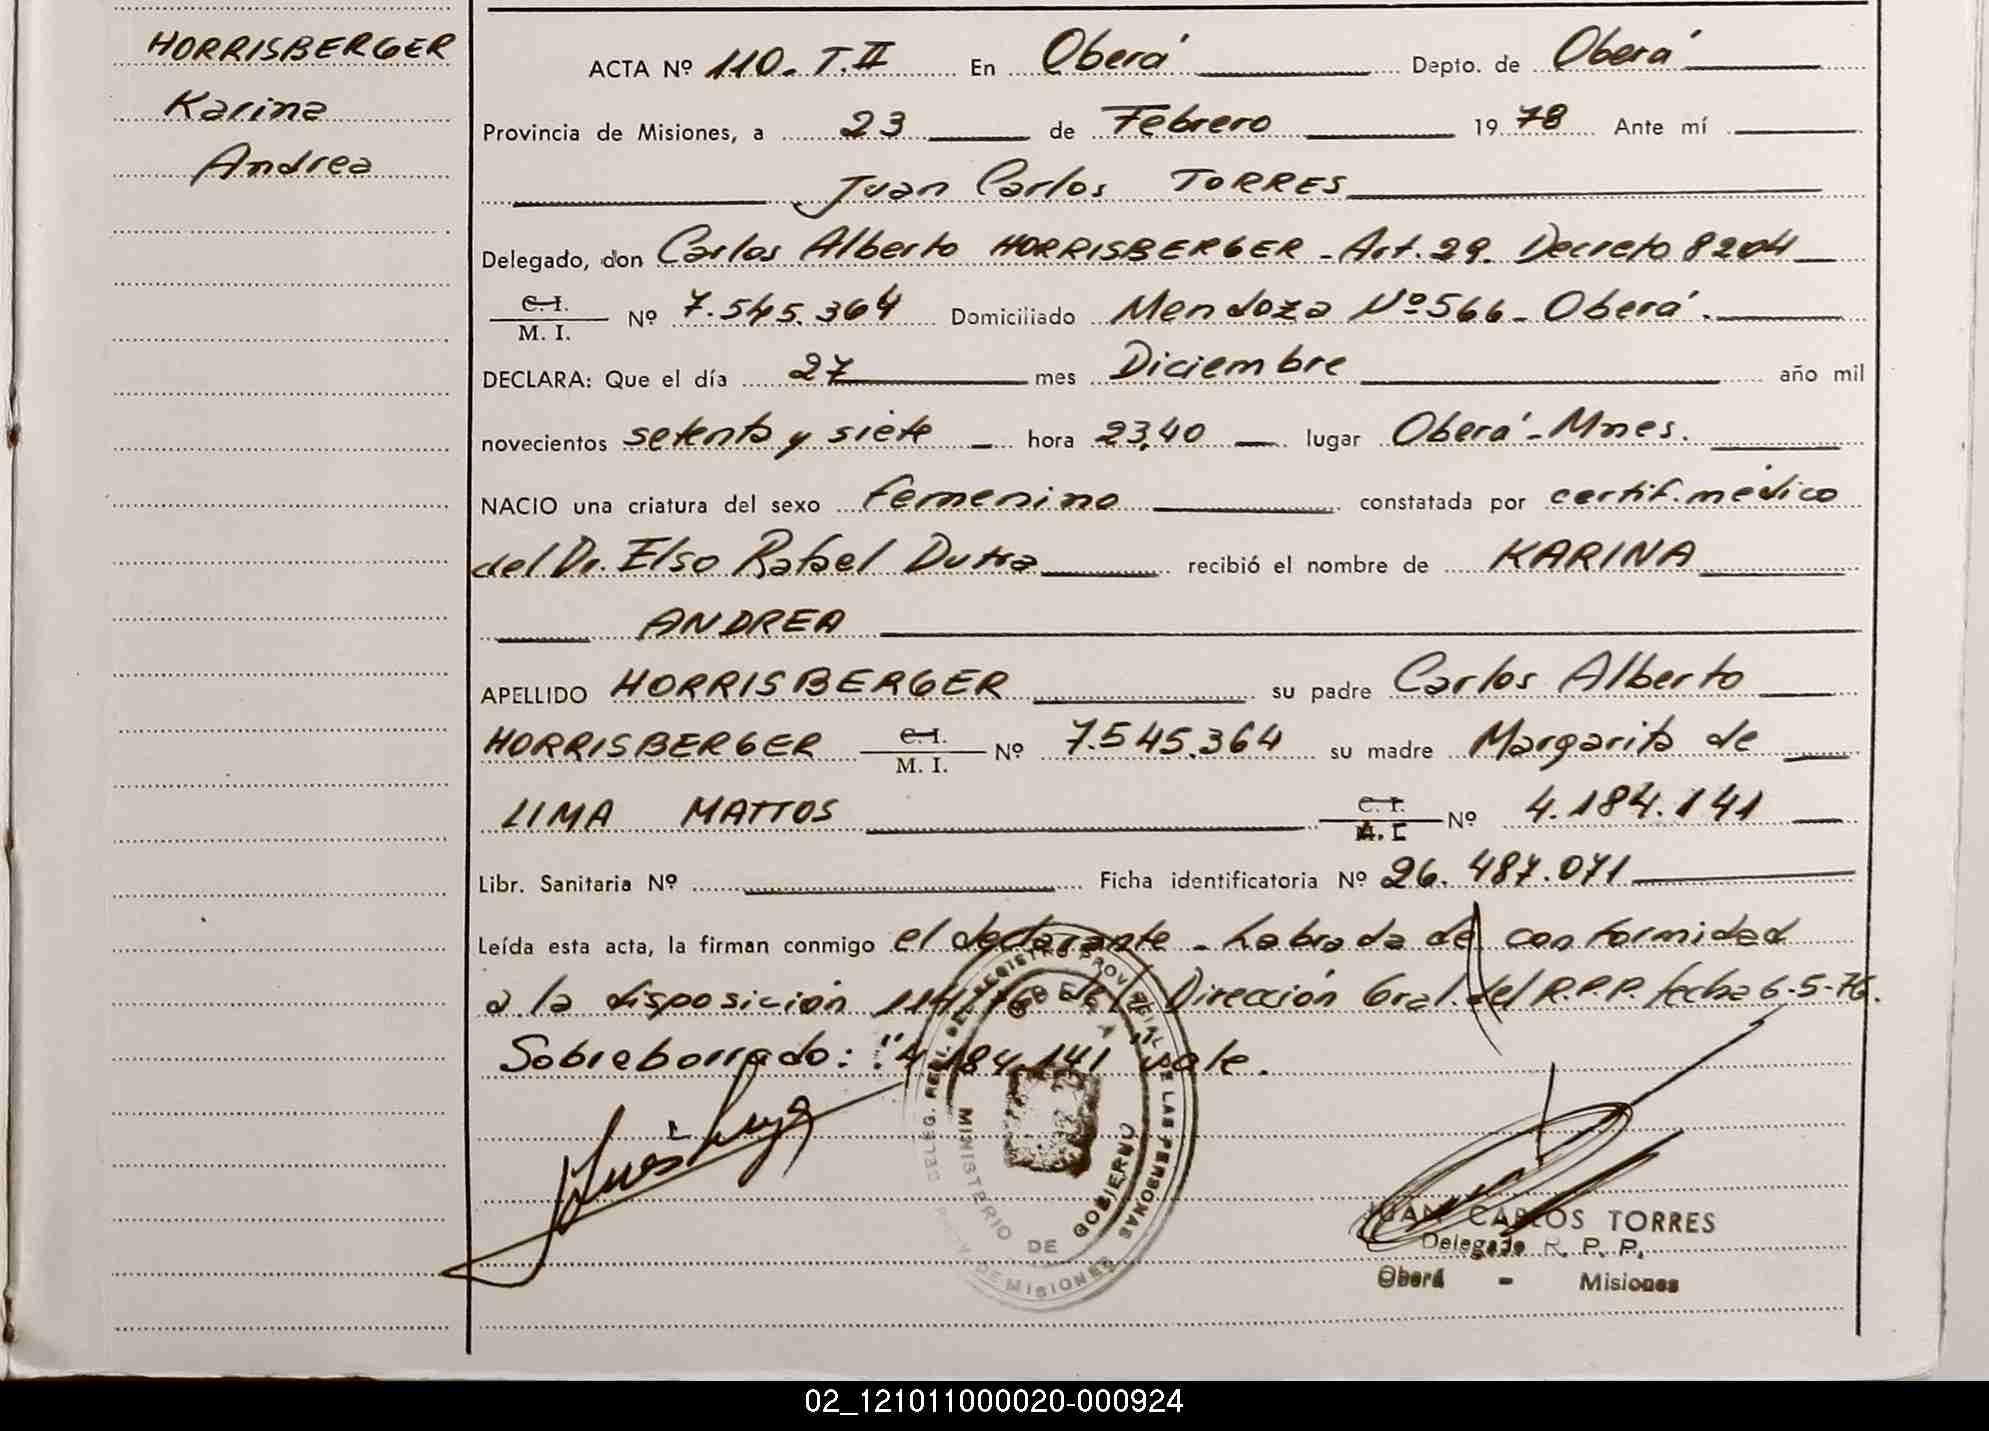 HORRISBERGER
Karina
Andrea
ACTA Nº 110. T.II En Oberá Depto. de Oberá
Provincia de Misiones, a 23 de Febrero 1978 Ante mí
Juan Carlos TORRES
Delegado, don Carlos Alberto HORRISBERGER - Art. 29. Decreto 8204
C. I.
M. I. Nº 7.545.364 Domiciliado Mendoza Nº 566 - Oberá.
DECLARA: Que el día 27 mes Diciembre año mil
novecientos setenta y siete hora 23,40 lugar Oberá - Mnes.
NACIO una criatura del sexo femenino constatada por certif. médico
del Dr. Elso Rafael Dutra recibió el nombre de KARINA
ANDREA
APELLIDO HORRISBERGER su padre Carlos Alberto
HORRISBERGER C. I.
M. I. Nº 7.545.364 su madre Margarita de
LIMA MATTOS C. I. Nº 4.184.141
Libr. Sanitaria Nº Ficha identificatoria Nº 26.487.071
Leída esta acta, la firman conmigo el declarante - Labrada de conformidad
a la disposición 114/76 de Dirección Gral. del R.P.P. fecha 6-5-76.
Sobreborrado: "4.184.141" vale.
DELEG. REGI. DEL REGISTRO PROVINCIAL DE LAS PERSONAS
MINISTERIO DE GOBIERNO
OBERA
DE MISIONES
JUAN CARLOS TORRES
Delegado R. P. P.
Oberá - Misiones
02_121011000020-000924